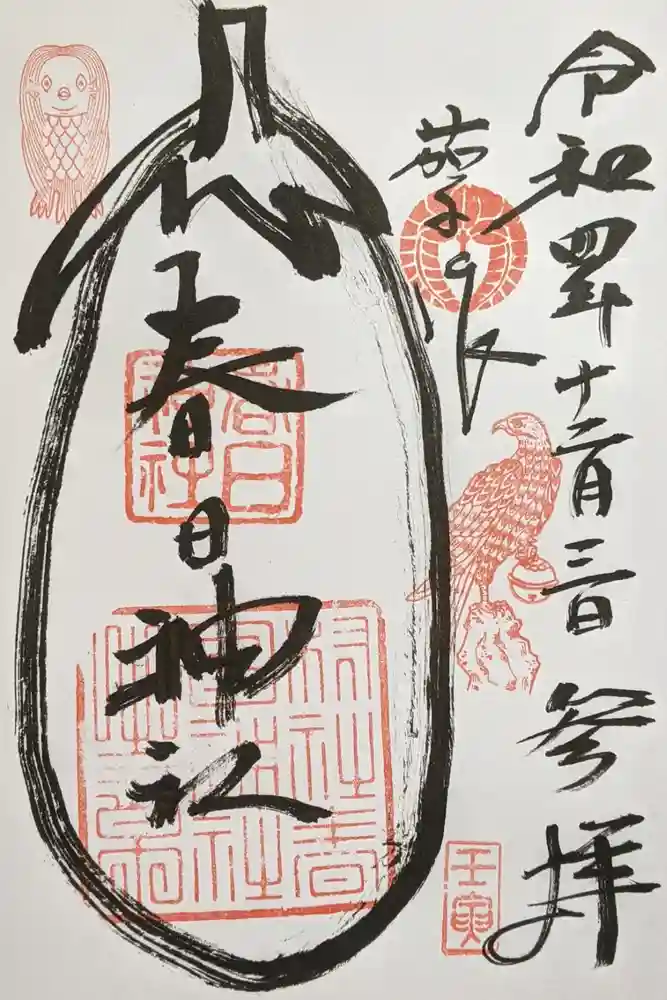 令和四年十二月三日 参拝
茄子の作
春日神社
春日
神社
壬寅